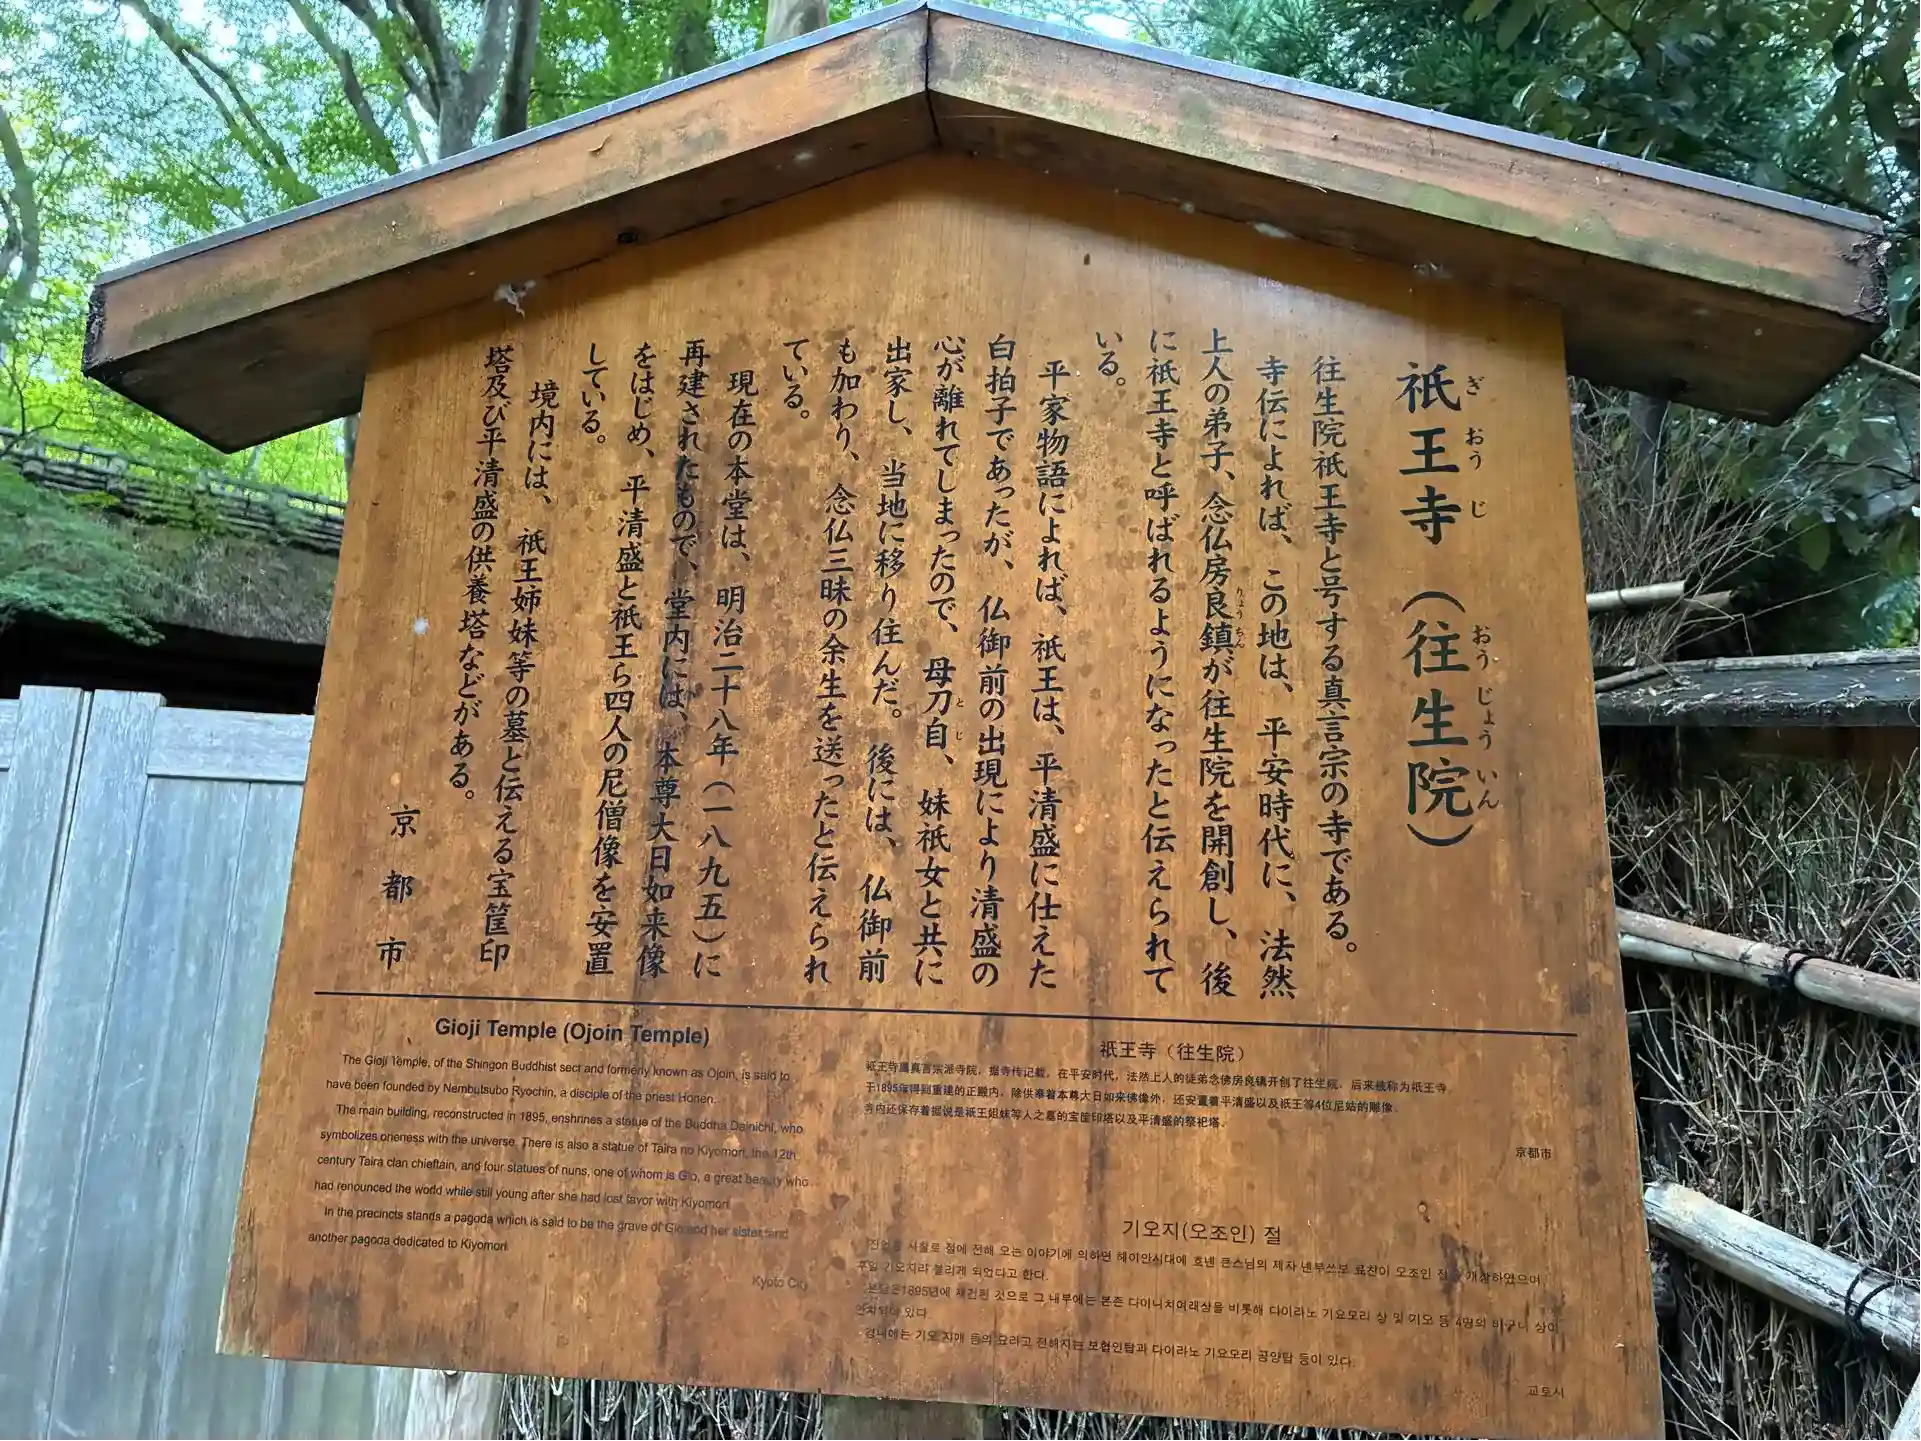 祇王寺（往生院）
ぎおうじ
おうじょういん
往生院祇王寺と号する真言宗の寺である。
寺伝によれば、この地は、平安時代に、法然
上人の弟子、念仏房良鎮が往生院を開創し、後
りょうちん
に祇王寺と呼ばれるようになったと伝えられて
いる。
平家物語によれば、祇王は、平清盛に仕えた
白拍子であったが、仏御前の出現により清盛の
心が離れてしまったので、母刀自、妹祇女と共に
とじ
出家し、当地に移り住んだ。後には、仏御前
も加わり、念仏三昧の余生を送ったと伝えられ
ている。
現在の本堂は、明治二十八年（一八九五）に
再建されたもので、堂内には、本尊大日如来像
をはじめ、平清盛と祇王ら四人の尼僧像を安置
している。
境内には、祇王姉妹等の墓と伝える宝筐印
塔及び平清盛の供養塔などがある。
京都市
Gioji Temple (Ojoin Temple)
The Gioji Temple, of the Shingon Buddhist sect and formerly known as Ojoin, is said to
have been founded by Nembutsubo Ryochin, a disciple of the priest Honen.
The main building, reconstructed in 1895, enshrines a statue of the Buddha Dainichi, who
symbolizes oneness with the universe. There is also a statue of Taira no Kiyomori, the 12th
century Taira clan chieftain, and four statues of nuns, one of whom is Gio, a great beauty who
had renounced the world while still young after she had lost favor with Kiyomori.
In the precincts stands a pagoda which is said to be the grave of Gio and her sister, and
another pagoda dedicated to Kiyomori.
Kyoto City
祇王寺（往生院）
祇王寺属真言宗派寺院。据寺传记载，在平安时代，法然上人的徒弟念佛房良镇开创了往生院，后来被称为祇王寺。
于1895年得到重建的正殿内，除供奉着本尊大日如来佛像外，还安置着平清盛以及祇王等4位尼姑的雕像。
寺内还保存着据说是祇王姐妹等人之墓的宝筐印塔以及平清盛的祭祀塔。
京都市
기오지(오조인) 절
사찰로 절에 전해 오는 이야기에 의하면 헤이안시대에 호넨 큰스님의 제자 넨부쓰보 료친이 오조인 절을 개창하였으며,
후일 기오지라 불리게 되었다고 한다.
본당은 1895년에 재건된 것으로 그 내부에는 본존 다이니치여래상을 비롯해 다이라노 기요모리 상 및 기오 등 4명의 비구니 상이
안치되어 있다.
경내에는 기오 자매 등의 묘라고 전해지는 보협인탑과 다이라노 기요모리 공양탑 등이 있다.
교토시